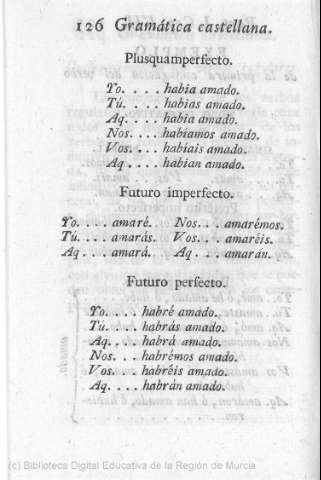 126 Gramática castellana.
Plusquamperfecto.
Yo. . . . habia amado.
Tú. . . . habias amado.
Aq. . . . habia amado.
Nos. . . . habíamos amado.
Vos. . . . habíais amado.
Aq . . . . habian amado.
Futuro imperfecto.
Yo. . . . amaré. Nos. . . . amarémos.
Tú. . . . amarás. Vos. . . . amaréis.
Aq . . . . amará. Aq . . . . amarán.
Futuro perfecto.
Yo. . . . habré amado.
Tú. . . . habrás amado.
Aq. . . . habrá amado.
Nos. . . . habrémos amado.
Vos. . . . habréis amado.
Aq. . . . habrán amado.
(c) Biblioteca Digital Educativa de la Región de Murcia